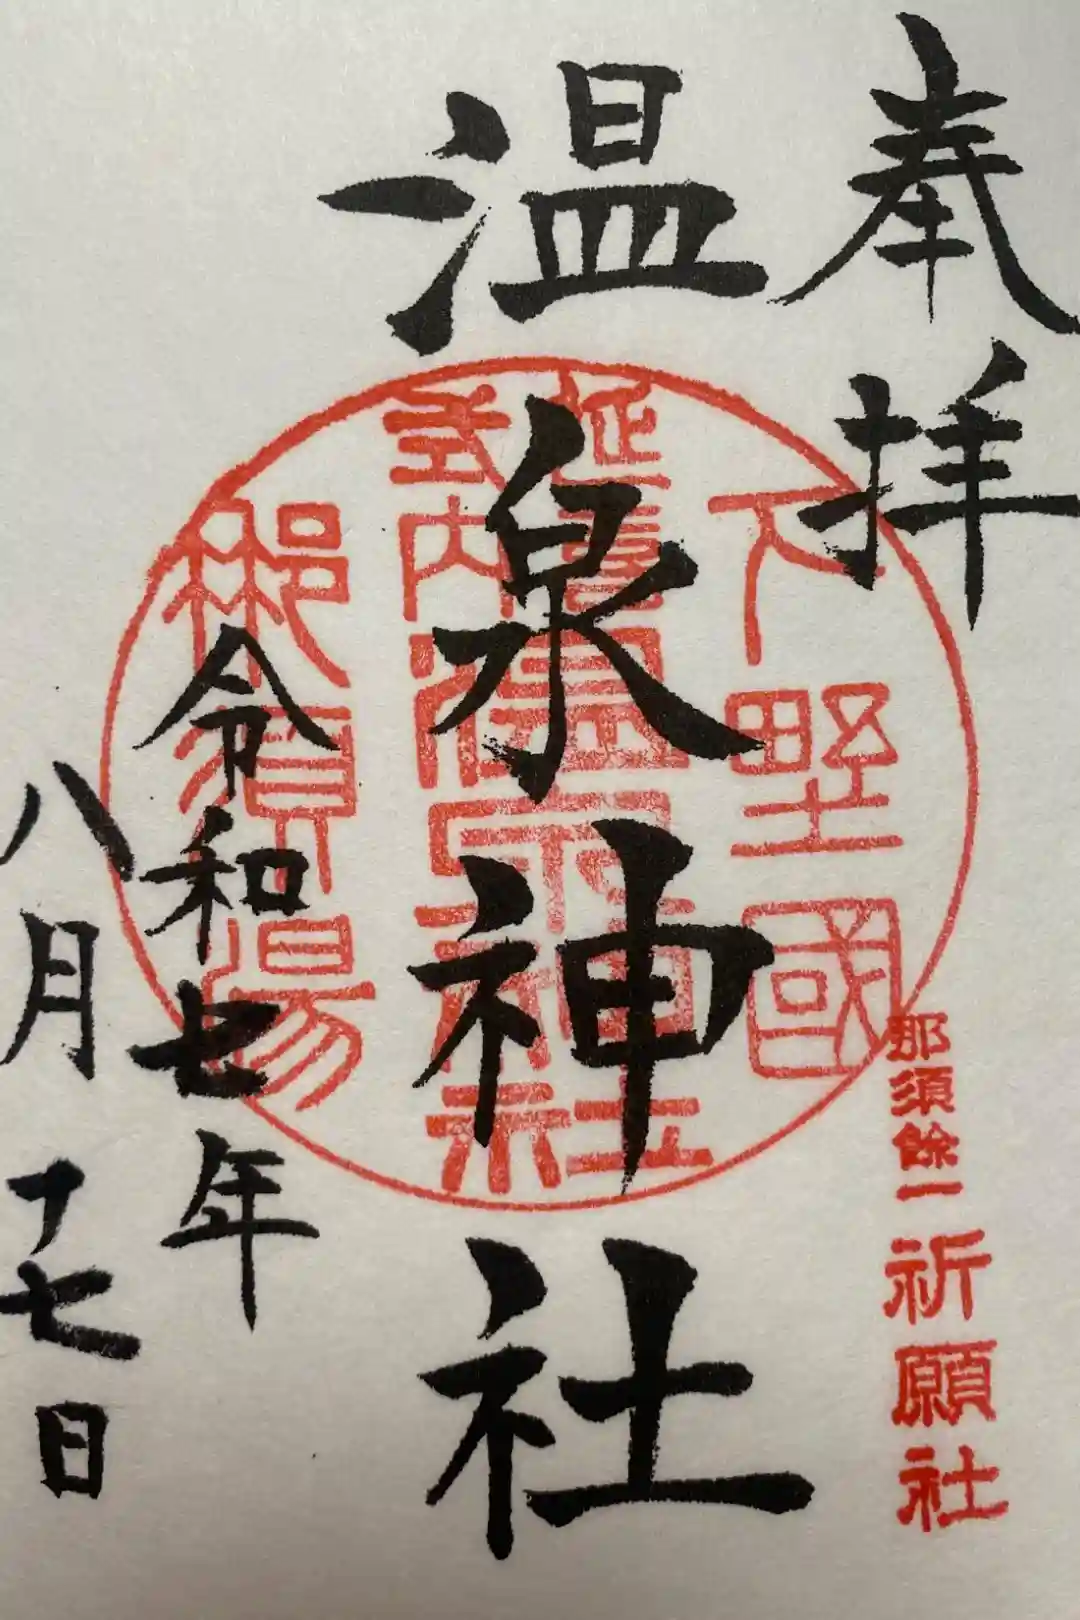 奉拝
下野國
那須餘一祈願社
延喜
式内
温泉神社
温泉神社
那須湯
令和七年
八月十七日